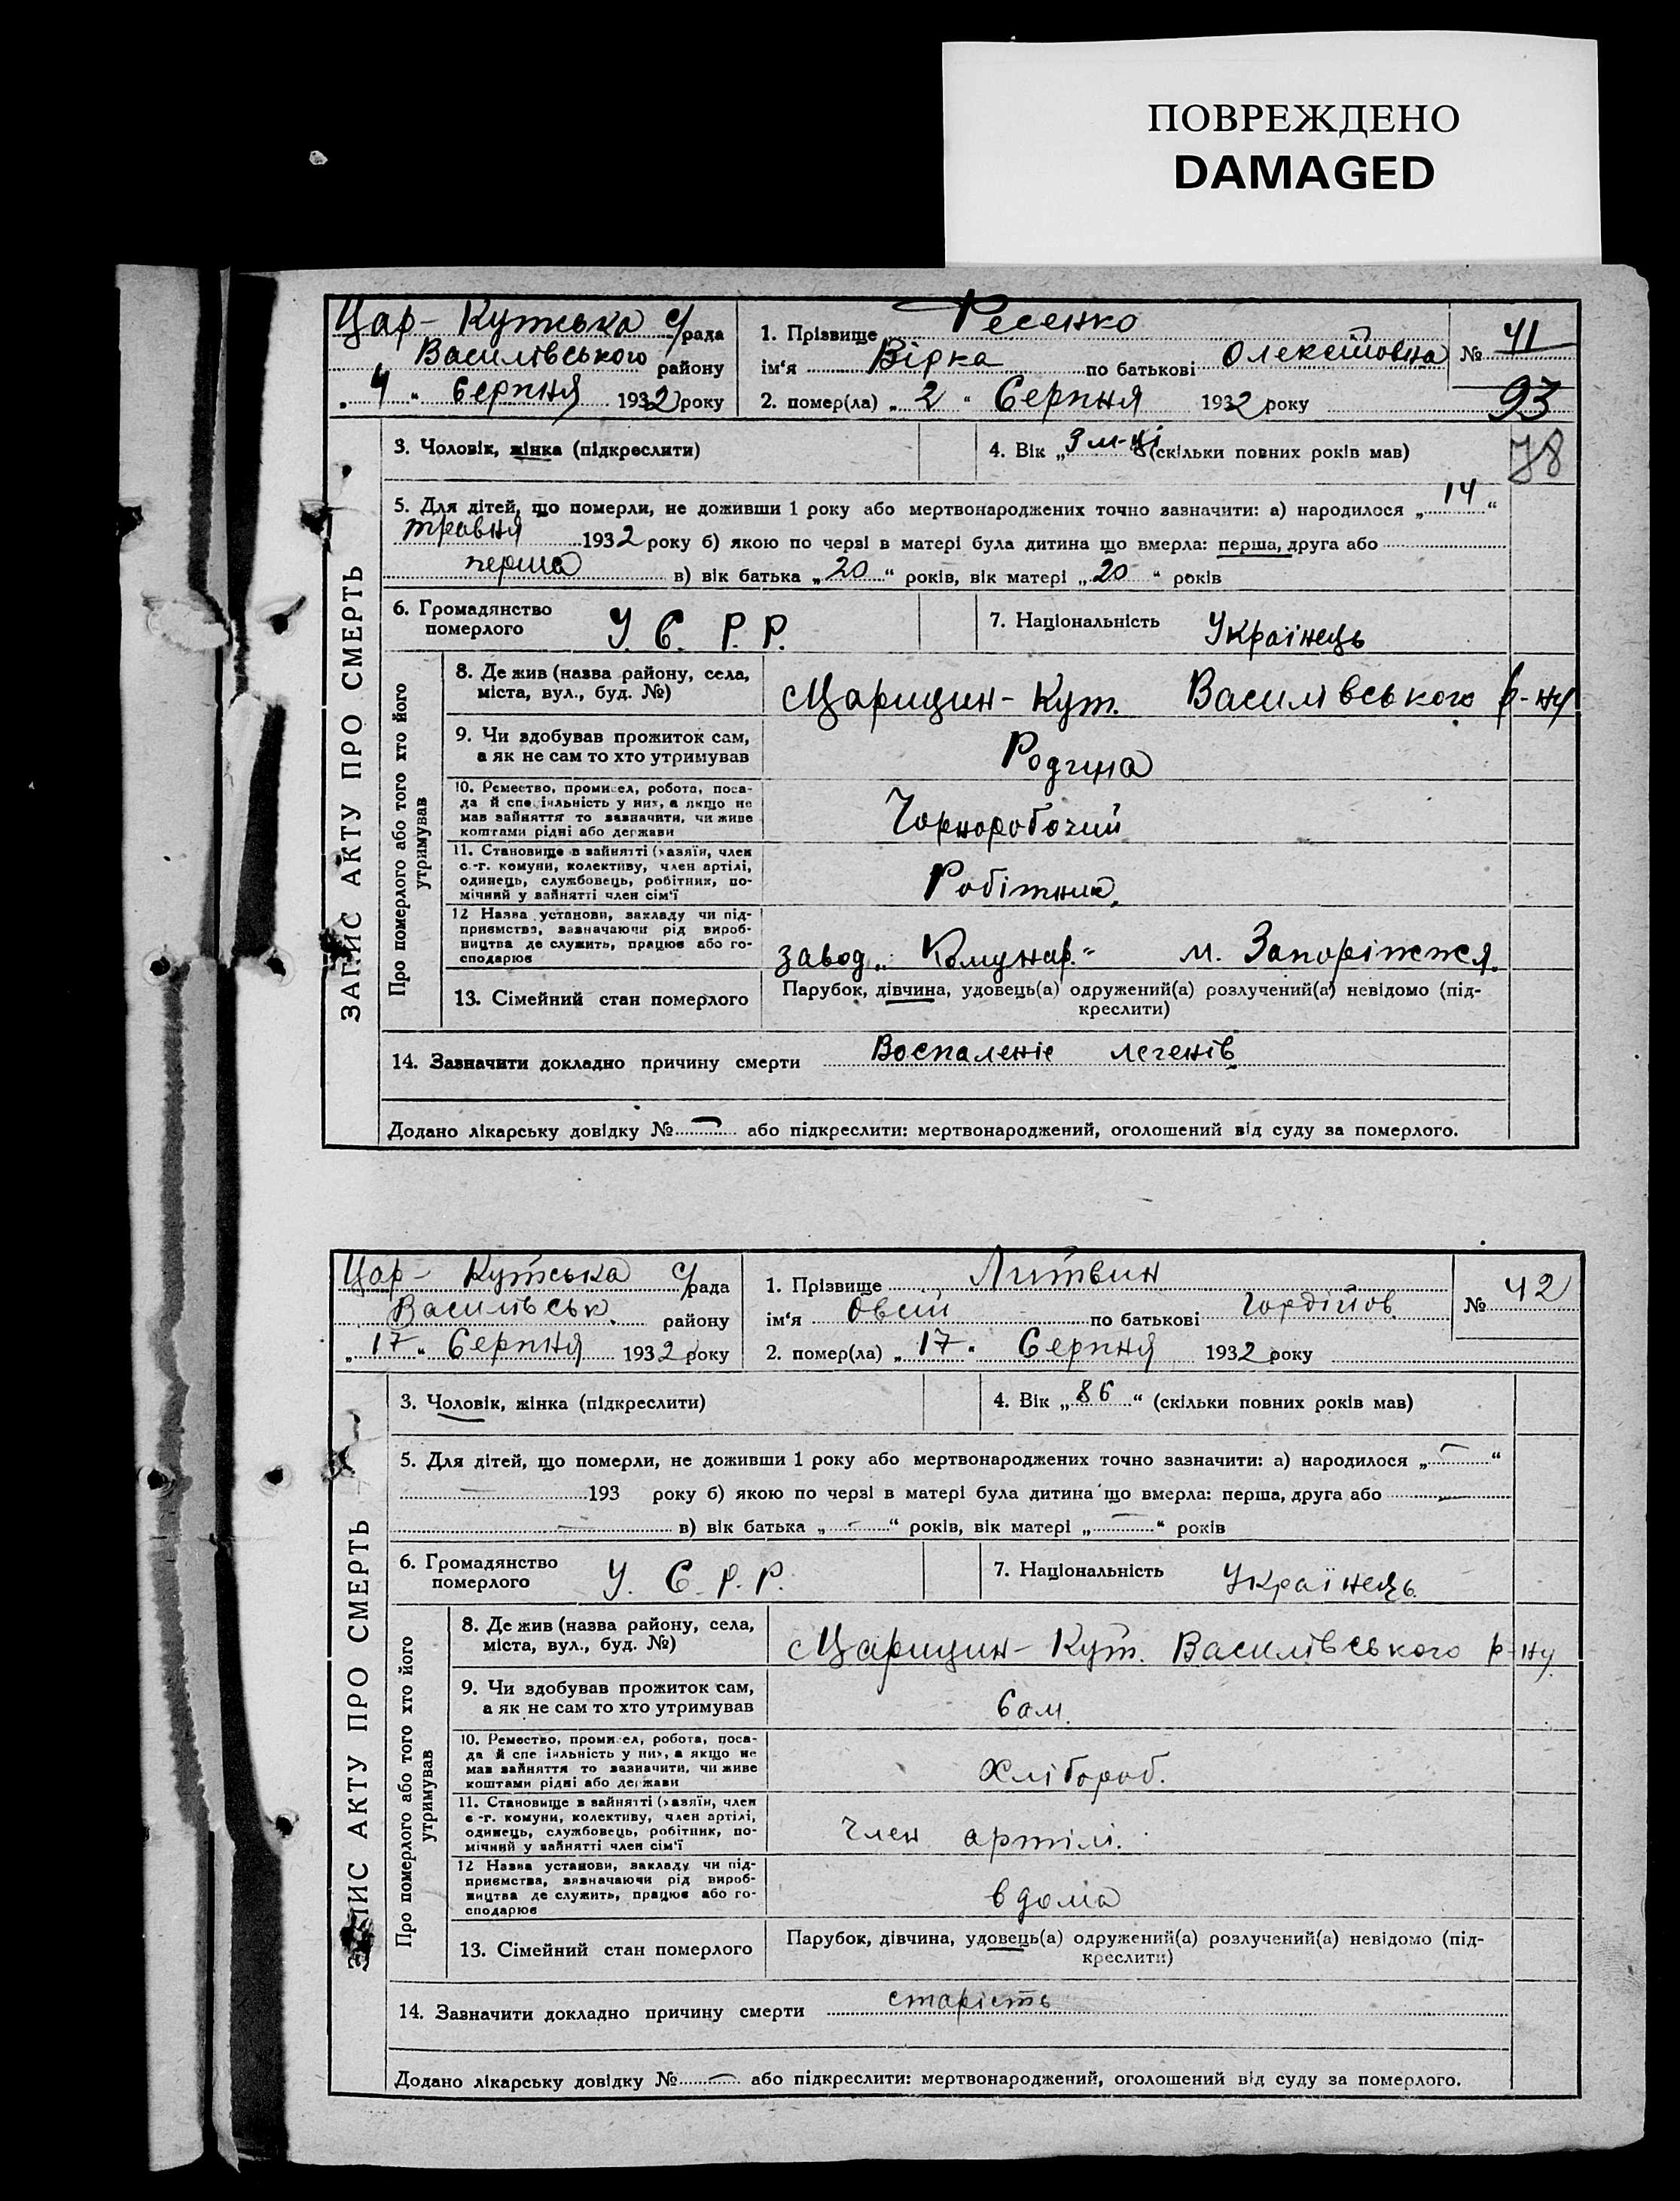 ПОВРЕЖДЕНО
DAMAGED
Цар-Кутська с/рада
Василівського району
„4“ Серпня 1932 року
1. Прізвище Фесенко
ім'я Вірка по батькові Олексіїовна
2. помер(ла) „2“ Серпня 1932 року
№ 41
93
78
ЗАПИС АКТУ ПРО СМЕРТЬ
3. Чоловік, жінка (підкреслити)
4. Вік „3 м-ці (скільки повних років мав)
5. Для дітей, що померли, не доживши 1 року або мертвонароджених точно зазначити: а) народилося „14“
травня 1932 року б) якою по черзі в матері була дитина що вмерла: перша, друга або
перша в) вік батька „20“ років, вік матері „20“ років
6. Громадянство
померлого
У. С. Р. Р.
7. Національність Українець
Про померлого або того хто його
утримував
8. Де жив (назва району, села,
міста, вул., буд. №)
Царицин-Кут. Василівського р-ну
9. Чи здобував прожиток сам,
а як не сам то хто утримував
Родина
10. Ремество, промисел, робота, поса-
да й спеціяльність у них, а якщо не
мав зайняття то зазначити, чи живе
коштами рідні або держави
Чорноробочий
11. Становище в зайнятті (хазяїн, член
с.-г. комуни, колективу, член артілі,
одинець, службовець, робітник, по-
мічний у зайнятті член сім'ї
Робітник.
12 Назва установи, закладу чи під-
приємства, зазначаючи рід вироб-
ництва де служить, працює або го-
сподарює
завод „Комунар.“ м. Запоріжжя.
13. Сімейний стан померлого
Парубок, дівчина, удовець(а) одружений(а) розлучений(а) невідомо (під-
креслити)
14. Зазначити докладно причину смерти Воспаленіе легенів
Додано лікарську довідку № — або підкреслити: мертвонароджений, оголошений від суду за померлого.
Цар-Кутська с/рада
Василівськ. району
„17“ Серпня 1932 року
1. Прізвище Литвин
ім'я Овсій по батькові Гордійов.
2. помер(ла) „17“ Серпня 1932 року
№ 42
ЗАПИС АКТУ ПРО СМЕРТЬ
3. Чоловік, жінка (підкреслити)
4. Вік „86“ (скільки повних років мав)
5. Для дітей, що померли, не доживши 1 року або мертвонароджених точно зазначити: а) народилося „—“
— 193 року б) якою по черзі в матері була дитина що вмерла: перша, друга або —
— в) вік батька „—“ років, вік матері „—“ років
6. Громадянство
померлого
У. С. Р. Р.
7. Національність Українець
Про померлого або того хто його
утримував
8. Де жив (назва району, села,
міста, вул., буд. №)
Царицин-Кут. Василівського р-ну.
9. Чи здобував прожиток сам,
а як не сам то хто утримував
Сам.
10. Ремество, промисел, робота, поса-
да й спеціяльність у них, а якщо не
мав зайняття то зазначити, чи живе
коштами рідні або держави
Хлібороб.
11. Становище в зайнятті (хазяїн, член
с.-г. комуни, колективу, член артілі,
одинець, службовець, робітник, по-
мічний у зайнятті член сім'ї
Член артілі.
12 Назва установи, закладу чи під-
приємства, зазначаючи рід вироб-
ництва де служить, працює або го-
сподарює
вдома
13. Сімейний стан померлого
Парубок, дівчина, удовець(а) одружений(а) розлучений(а) невідомо (під-
креслити)
14. Зазначити докладно причину смерти старість
Додано лікарську довідку № — або підкреслити: мертвонароджений, оголошений від суду за померлого.